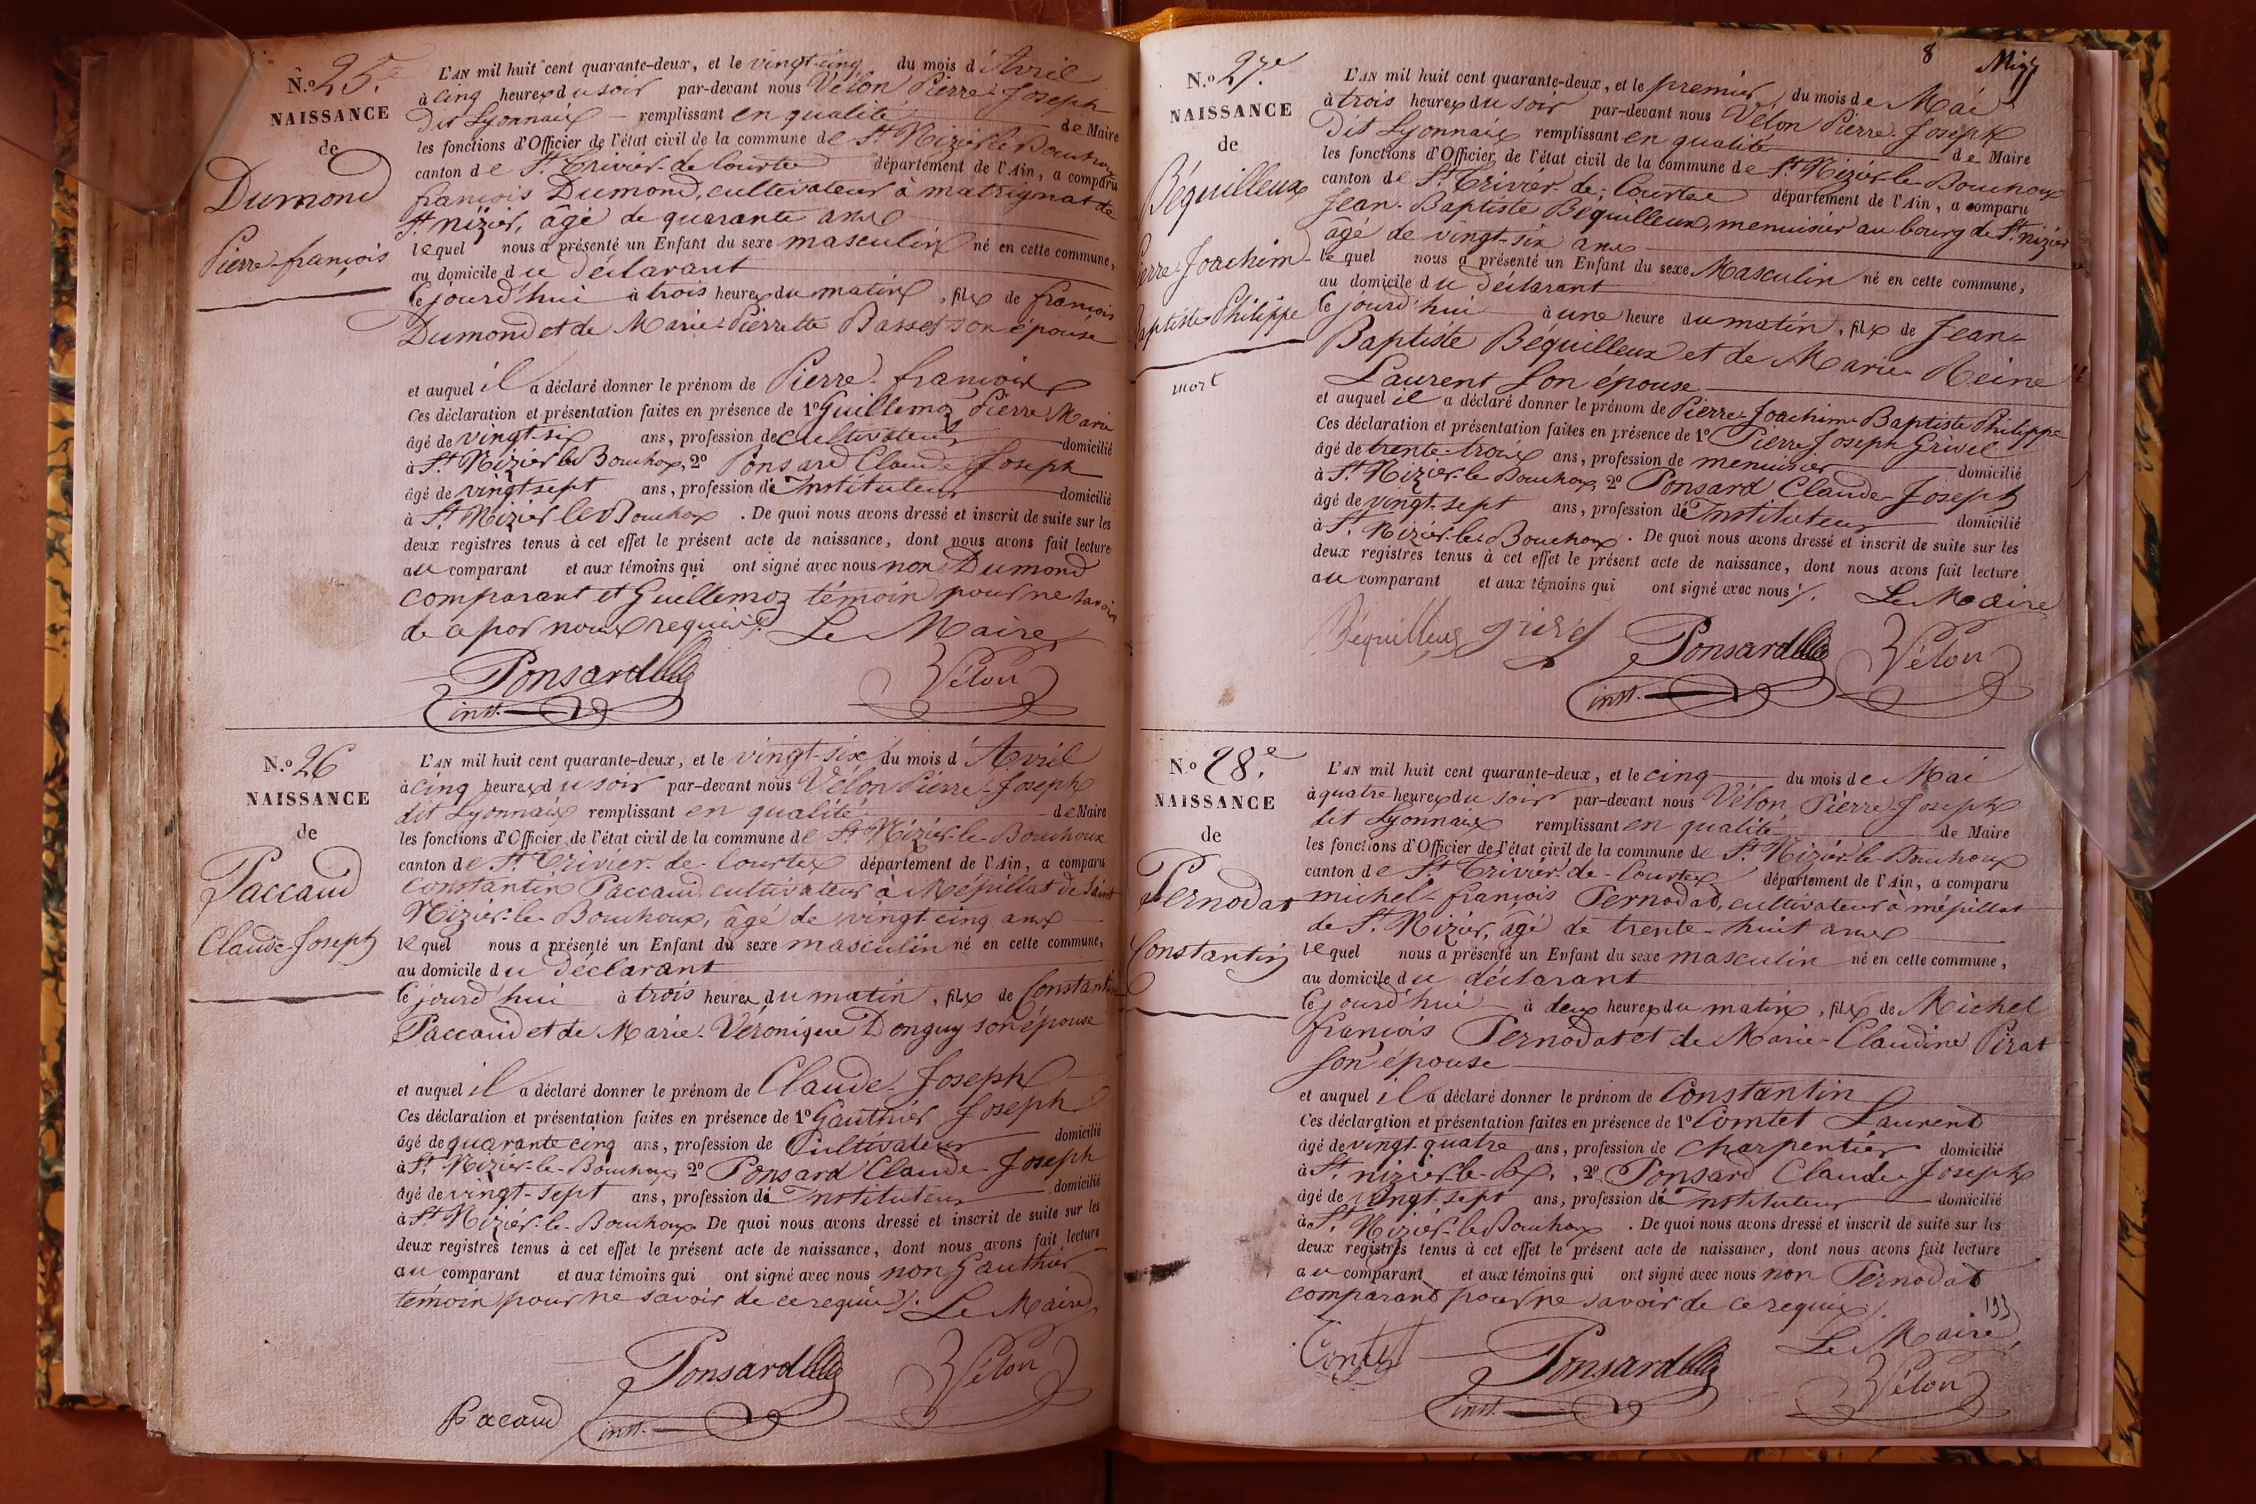 N.o 25.e
NAISSANCE
de
Dumond
Pierre-françois
L'AN mil huit cent quarante-deux, et le vingt-cinq du mois d'Avril
à cinq heures du soir par-devant nous Vélon Pierre-Joseph
dit Lyonnais remplissant en qualité de Maire
les fonctions d'Officier de l'état civil de la commune de St Nizier-le-Bouchoux
canton de St Trivier-de-Courtes département de l'Ain, a comparu
françois Dumond, cultivateur à matrignat de
St nizier, âgé de quarante ans
lequel nous a présenté un Enfant du sexe masculin né en cette commune,
au domicile du déclarant
Cejourd'hui à trois heures du matin, fils de françois
Dumond et de Marie-Pierrette Basset son épouse
et auquel il a déclaré donner le prénom de Pierre-françois
Ces déclaration et présentation faites en présence de 1o Guillemoz Pierre Marie
âgé de vingt-six ans, profession de cultivateur domicilié
à St Nizier-le Bouchoux, 2o Ponsard Claude Joseph
âgé de vingt sept ans, profession d'Instituteur domicilié
à St Nizier le Bouchoux. De quoi nous avons dressé et inscrit de suite sur les
deux registres tenus à cet effet le présent acte de naissance, dont nous avons fait lecture
au comparant et aux témoins qui ont signé avec nous non Dumond
comparant et Guillemoz témoin pour ne savoir
de ce par nous requis ./. Le Maire
Ponsard Vélon
inst.
N.o 26
NAISSANCE
de
Paccaud
Claude-Joseph
L'AN mil huit cent quarante-deux, et le vingt-six du mois d'Avril
à cinq heures du soir par-devant nous Vélon Pierre-Joseph
dit Lyonnais remplissant en qualité de Maire
les fonctions d'Officier de l'état civil de la commune de St Nizier-le-Bouchoux
canton de St Trivier-de-Courtes département de l'Ain, a comparu
Constantin Paccaud cultivateur à Mépillat de Saint
Nizier-le-Bouchoux, âgé de vingt-cinq ans
lequel nous a présenté un Enfant du sexe masculin né en cette commune,
au domicile du déclarant
Cejourd'hui à trois heures du matin, fils de Constantin
Paccaud et de Marie-Véronique Donguy son épouse
et auquel il a déclaré donner le prénom de Claude-Joseph
Ces déclaration et présentation faites en présence de 1o Gauthier Joseph
âgé de quarante cinq ans, profession de Cultivateur domicilié
à St Nizier-le-Bouchoux 2o Ponsard Claude-Joseph
âgé de vingt-sept ans, profession d'Instituteur domicilié
à St Nizier-le-Bouchoux De quoi nous avons dressé et inscrit de suite sur les
deux registres tenus à cet effet le présent acte de naissance, dont nous avons fait lecture
au comparant et aux témoins qui ont signé avec nous non Gauthier
témoin pour ne savoir de ce requis ./. Le Maire,
Ponsard Vélon
Pacaud inst.
8
N.o 27.e
NAISSANCE
de
Béquilleux
Pierre-Joachim-
Baptiste Philippe
mort
L'AN mil huit cent quarante-deux, et le premier du mois de Mai
à trois heures du soir par-devant nous Vélon Pierre-Joseph
dit Lyonnais remplissant en qualité de Maire
les fonctions d'Officier de l'état civil de la commune de St Nizier-le-Bouchoux
canton de St Trivier-de-Courtes département de l'Ain, a comparu
Jean-Baptiste Béquilleux, menuisier au bourg de St nizier
âgé de vingt-six ans
lequel nous a présenté un Enfant du sexe Masculin né en cette commune,
au domicile du déclarant
Cejourd'hui à une heure du matin, fils de Jean-
Baptiste Béquilleux et de Marie-Reine
Laurent son épouse
et auquel il a déclaré donner le prénom de Pierre-Joachim-Baptiste Philippe
Ces déclaration et présentation faites en présence de 1o Pierre Joseph Grivel
âgé de trente-trois ans, profession de menuisier domicilié
à St Nizier-le Bouchoux, 2o Ponsard Claude-Joseph
âgé de vingt-sept ans, profession d'Instituteur domicilié
à St Nizier-le-Bouchoux. De quoi nous avons dressé et inscrit de suite sur les
deux registres tenus à cet effet le présent acte de naissance, dont nous avons fait lecture
au comparant et aux témoins qui ont signé avec nous ./. Le Maire
Béquilleux Ponsard Vélon
inst.
N.o 28.e
NAISSANCE
de
Pernodat
Constantin
L'AN mil huit cent quarante-deux, et le cinq du mois de Mai
à quatre heures du soir par-devant nous Vélon Pierre-Joseph
dit Lyonnais remplissant en qualité de Maire
les fonctions d'Officier de l'état civil de la commune de St Nizier-le-Bouchoux
canton de St Trivier-de-Courtes département de l'Ain, a comparu
michel-françois Pernodat, cultivateur à mépillat
de St Nizier, âgé de trente-huit ans
lequel nous a présenté un Enfant du sexe masculin né en cette commune,
au domicile du déclarant
Cejourd'hui à deux heures du matin, fils de Michel
françois Pernodat et de Marie-Claudine Pirat
son épouse
et auquel il a déclaré donner le prénom de Constantin
Ces déclaration et présentation faites en présence de 1o Comtet Laurent
âgé de vingt-quatre ans, profession de Charpentier domicilié
à St nizier-le-Bx, 2o Ponsard Claude-Joseph
âgé de vingt-sept ans, profession d'Instituteur domicilié
à St Nizier-le Bouchoux. De quoi nous avons dressé et inscrit de suite sur les
deux registres tenus à cet effet le présent acte de naissance, dont nous avons fait lecture
au comparant et aux témoins qui ont signé avec nous non Pernodat
comparant pour ne savoir de ce requis ./.
Le Maire,
Contet Ponsard Vélon
inst.